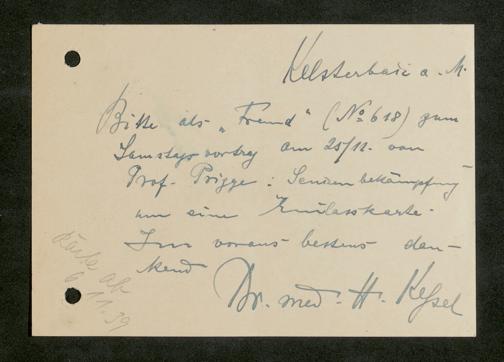 Kelsterbach a. M.
Bitte als "Freund" (No 618) zum
Samstagsvortrag am 25/11. von
Prof. Prigge: Seuchenbekämpfung
um eine Einlasskarte.
Im voraus bestens dan-
kend
Dr. med. H. Keßel
Karte ab
6. 11. 39